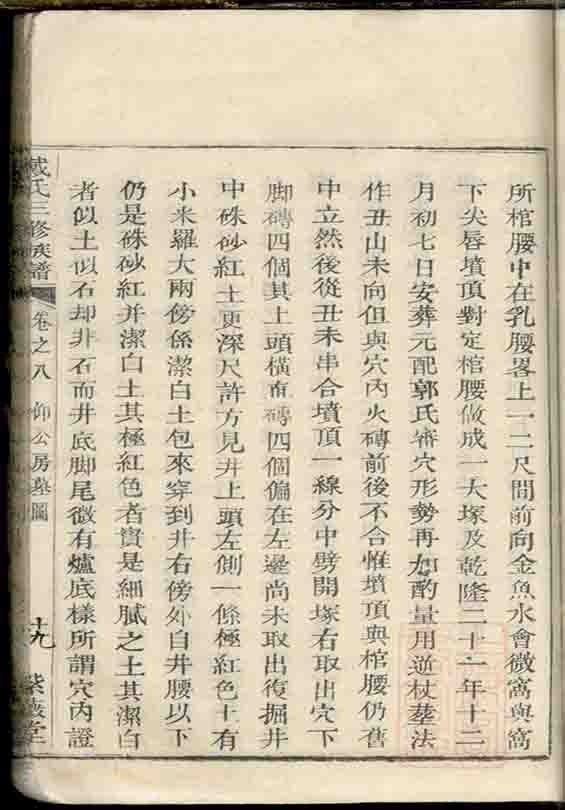 所棺腰中在乳腰畧上一二尺間前向金魚水會微窩與窩
下尖唇墳頂對定棺腰做成一大塚及乾隆二十一年十二
月初七日安葬元配郭氏審穴形勢再加酌量用逆杖塟法
作丑山未向但與穴內火磚前後不合惟墳頂與棺腰仍舊
中立然後從丑未串合墳頂一線分中劈開塚右取出穴下
脚磚四個其上頭橫布磚四個偏在左邊尚未取出復掘井
中硃砂紅土更深尺許方見井上頭左側一條極紅色土有
小米羅大兩傍係潔白土包來穿到井右傍外自井腰以下
仍是硃砂紅并潔白土其極紅色者實是細膩之土其潔白
者似土似石却非石而井底脚尾微有爐底樣所謂穴內證
戴氏三修族譜 卷之八 仰公房墓圖 十九 紫薇堂